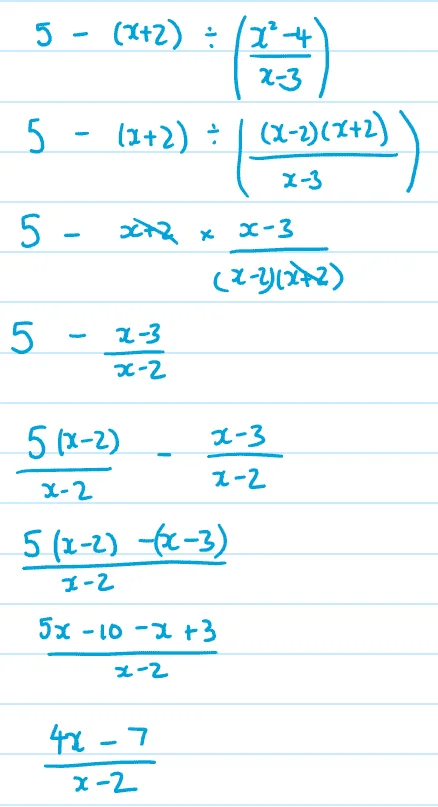 5 - (x+2) ÷ ((x²-4)/(x-3))
5 - (x+2) ÷ ((x-2)(x+2)/(x-3))
5 - x+2 × (x-3)/((x-2)(x+2))
5 - (x-3)/(x-2)
5(x-2)/(x-2) - (x-3)/(x-2)
(5(x-2) -(x-3))/(x-2)
(5x -10 -x +3)/(x-2)
(4x - 7)/(x-2)